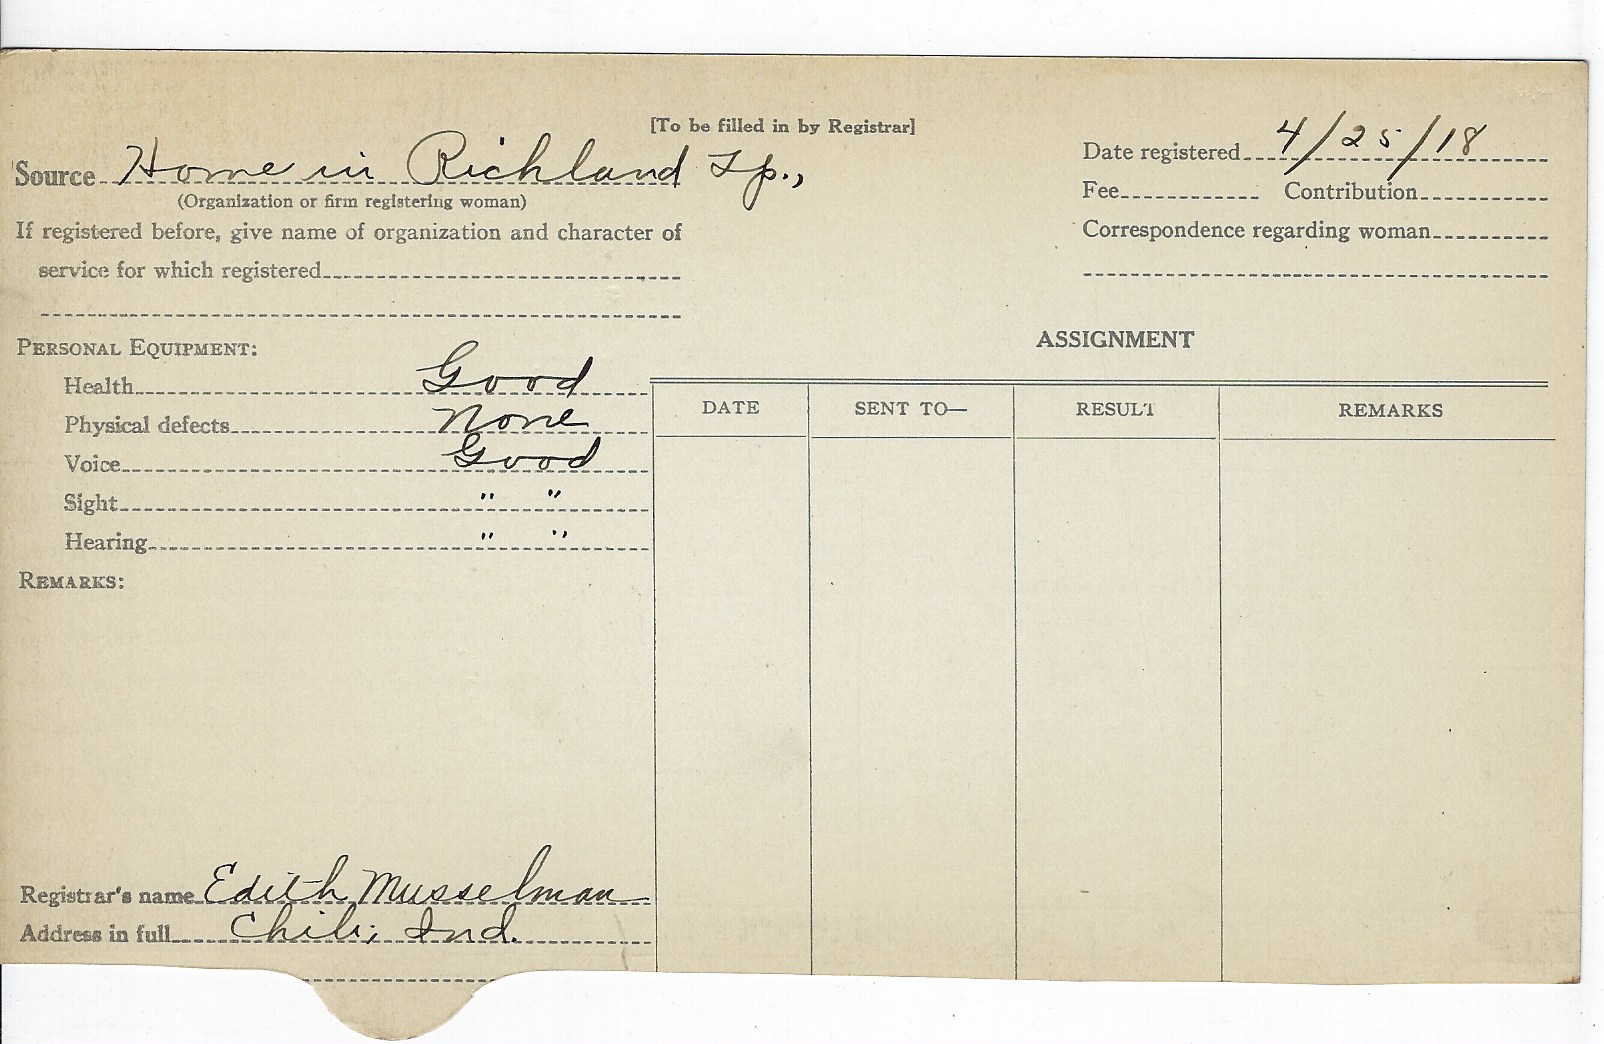 [To be filled in by Registrar]
Source Home in Richland Tp.,
(Organization or firm registering woman)
If registered before, give name of organization and character of
service for which registered
Date registered 4/25/18
Fee Contribution
Correspondence regarding woman
PERSONAL EQUIPMENT:
Health Good
Physical defects None
Voice Good
Sight " "
Hearing " "
REMARKS:
ASSIGNMENT
DATE SENT TO— RESULT REMARKS
Registrar's name Edith Musselman
Address in full Chili, Ind.